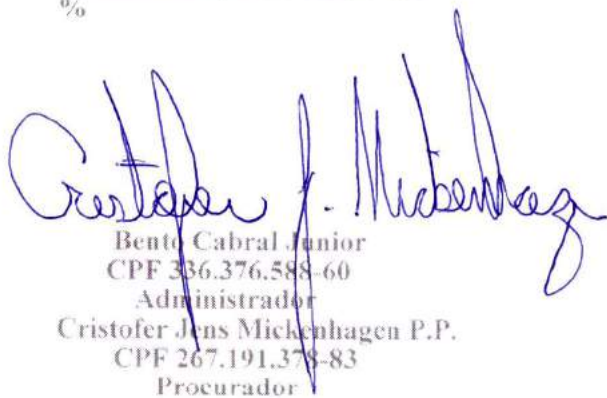 %
Cristofer J. Mickenhagen
Bento Cabral Junior
CPF 336.376.588-60
Administrador
Cristofer Jens Mickenhagen P.P.
CPF 267.191.378-83
Procurador